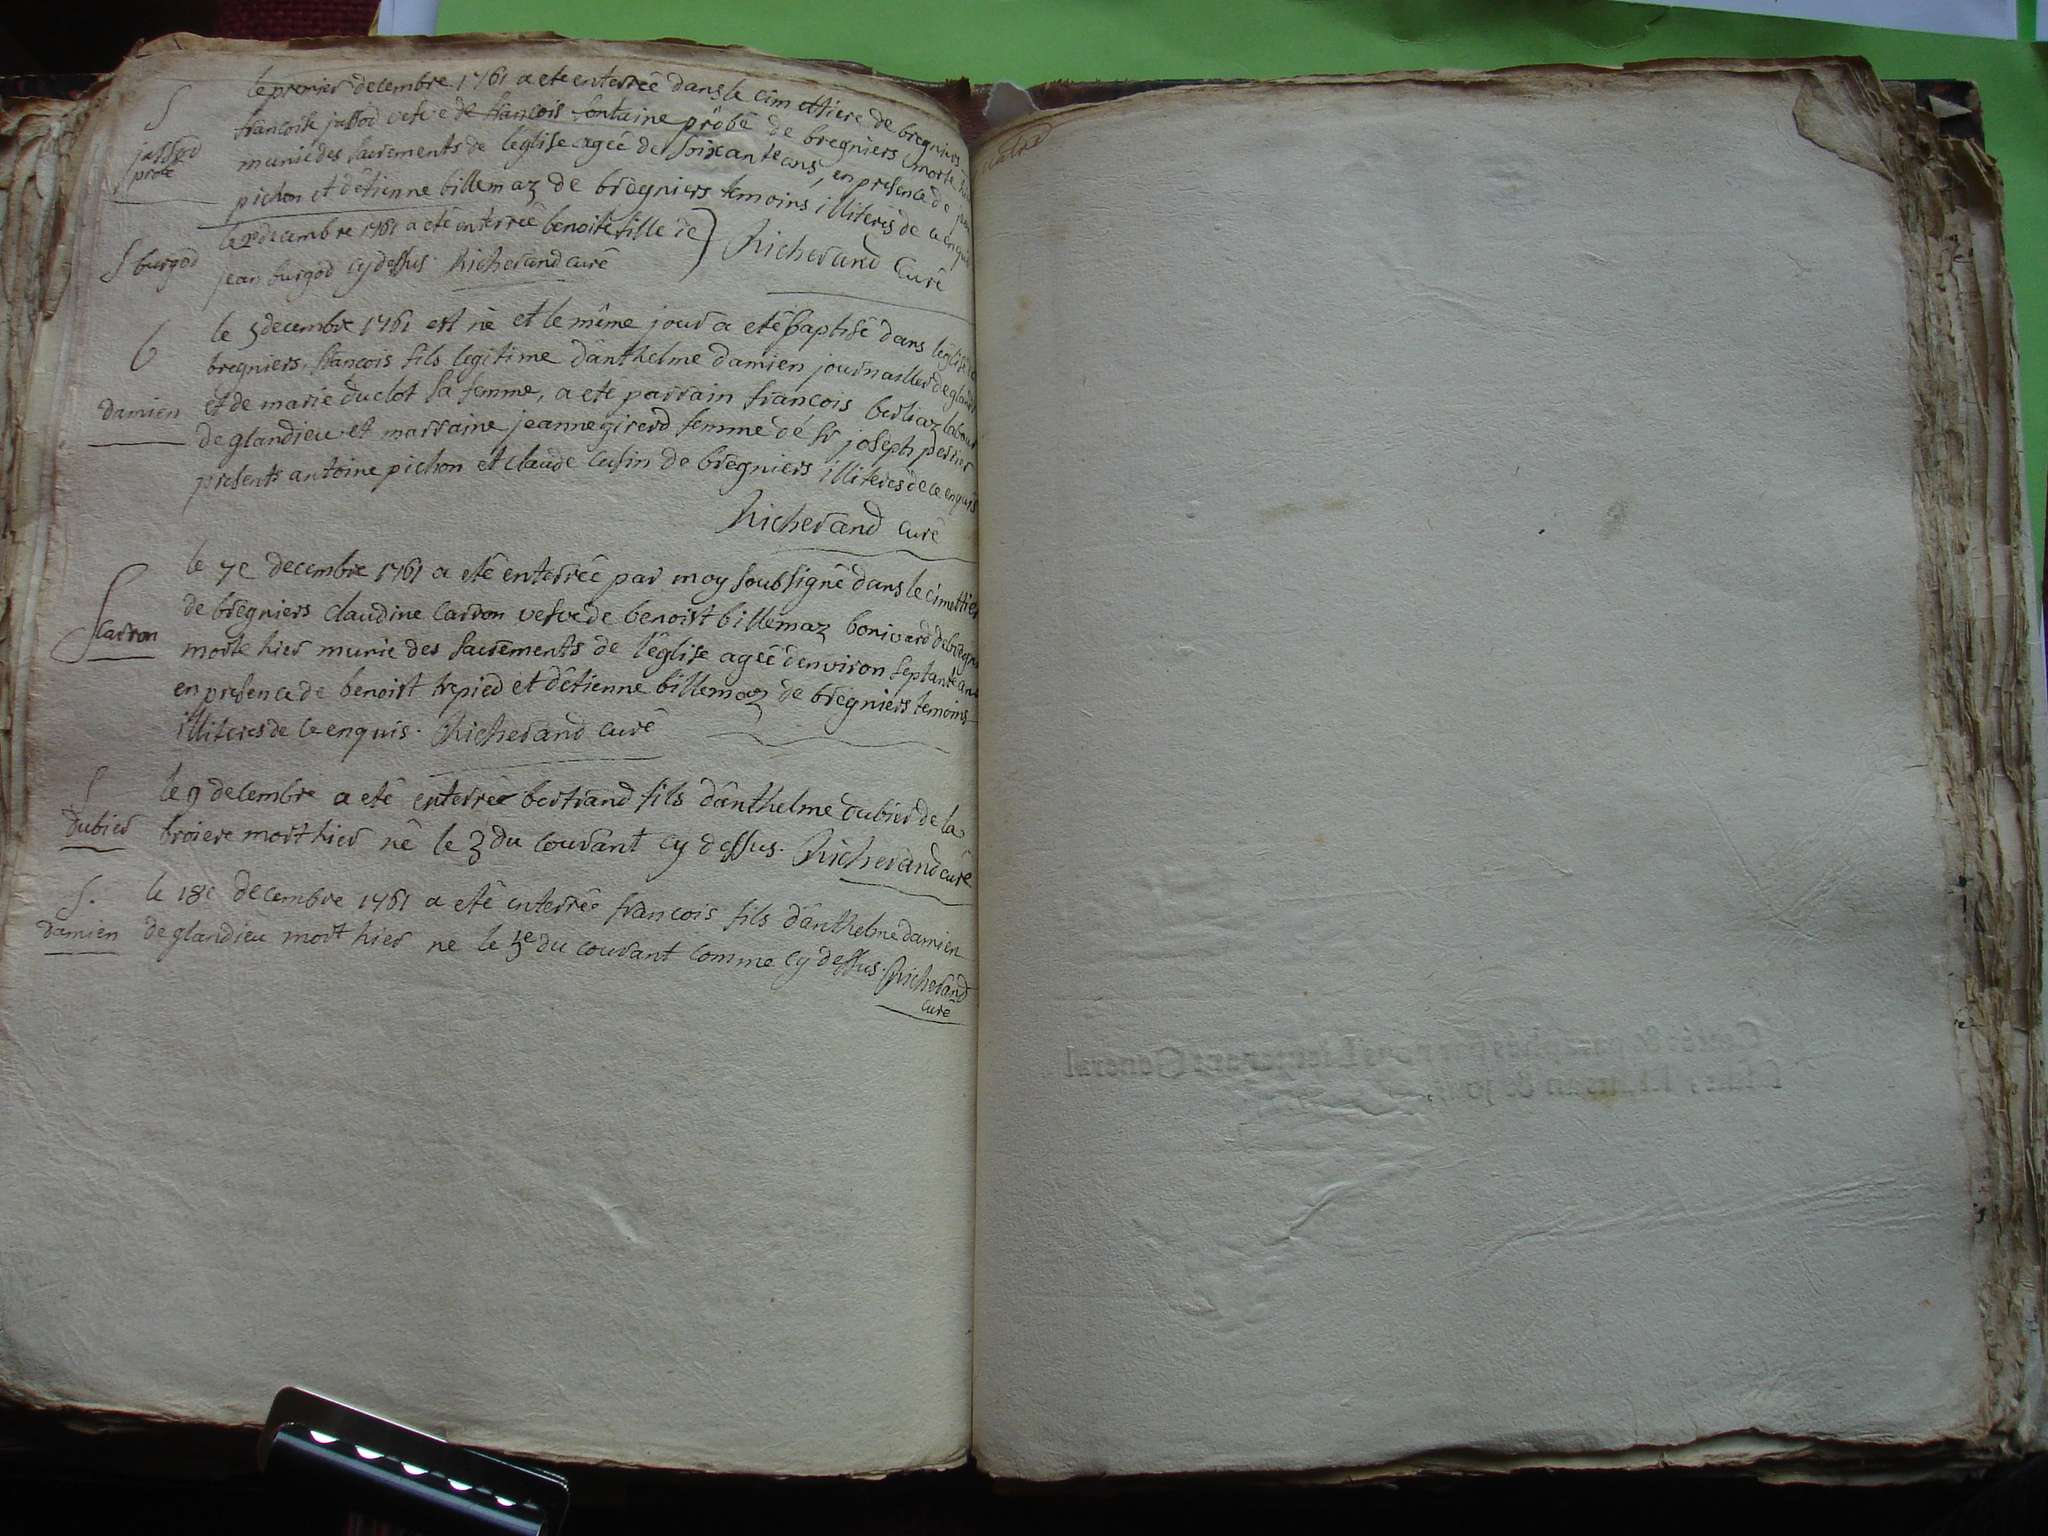 S
jassod
probe
le premier decembre 1761 a eté enterrée dans le cimettiere de bregniers
francoise jassod vefve de francois fontaine probé de bregniers morte hier
munie des sacrements de l'eglise agée de soixante ans, en presence de jean
pichon et d'étienne billemaz de bregniers temoins illiterés de ce enquis
Richerand curé
S burgod
le decembre 1761 a eté enterrée benoite fille de
jean burgod cy dessus. Richerand curé
b
damien
le 5 decembre 1761 est né et le même jour a eté baptisé dans l'église de
bregniers, francois fils legitime d'anthelme damien journailler de glandieu
et de marie duclot sa femme, a eté parrain francois berliaz
de glandieu et marraine jeanne girerd femme de sr joseph perrier
presents antoine pichon et claude cusin de bregniers illiterés de ce enquis
Richerand curé
S
carron
le 7e decembre 1761 a eté enterrée par moy soubsigné dans le cimettiere
de bregniers claudine carron vefve de benoist billemaz bonivard de bregniers
morte hier munie des sacrements de l'église agée d'environ septante ans
en presence de benoist trepied et d'étienne billemaz de bregniers temoins
illiterés de ce enquis. Richerand curé
S
dubier
le 9 decembre a eté enterrée bertrand fils d'anthelme dubier de la
broiere mort hier né le 3 du courant cy dessus. Richerand curé
S.
damien
le 18e decembre 1761 a eté enterrée francois fils d'anthelme damien
de glandieu mort hier ne le 5e du courant comme cy dessus. Richerand
curé